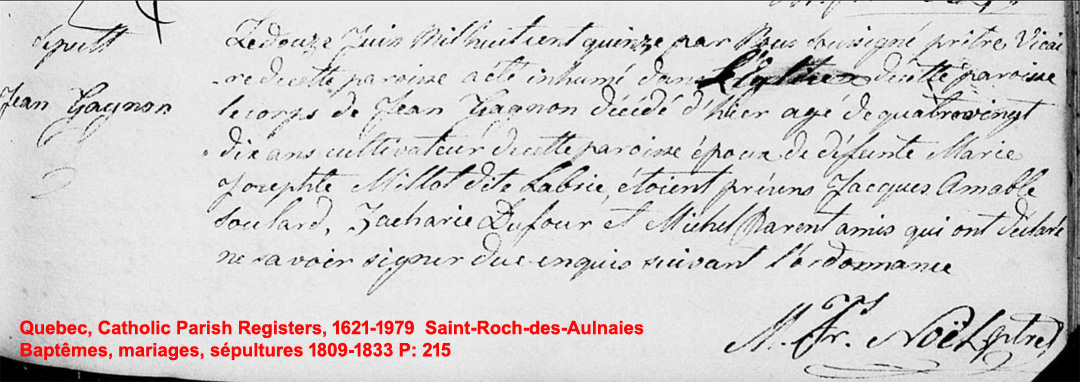 Sepult
Jean Gagnon
Le douze Juin Mil huit cent quinze par Nous soussigné prêtre Vicai
-re de cette paroisse a été inhumé dans l'Eglise de cette paroisse
le corps de Jean Gagnon décédé d'hier agé de quatrevingt
dix ans cultivateur de cette paroisse époux de défunte Marie
Josephte Millot dite Labrie, étoient présens Jacques Amable
Soulard, Zacharie Dufour et Michel Parent amis qui ont déclaré
ne savoir signer due enquis suivant l'ordonnance
M. Fr. Noël ptre
Quebec, Catholic Parish Registers, 1621-1979 Saint-Roch-des-Aulnaies
Baptêmes, mariages, sépultures 1809-1833 P: 215